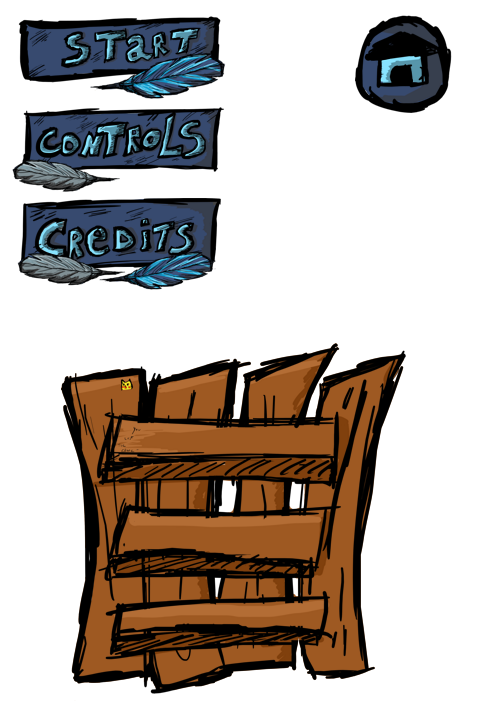 START
CONTROLS
CREDITS